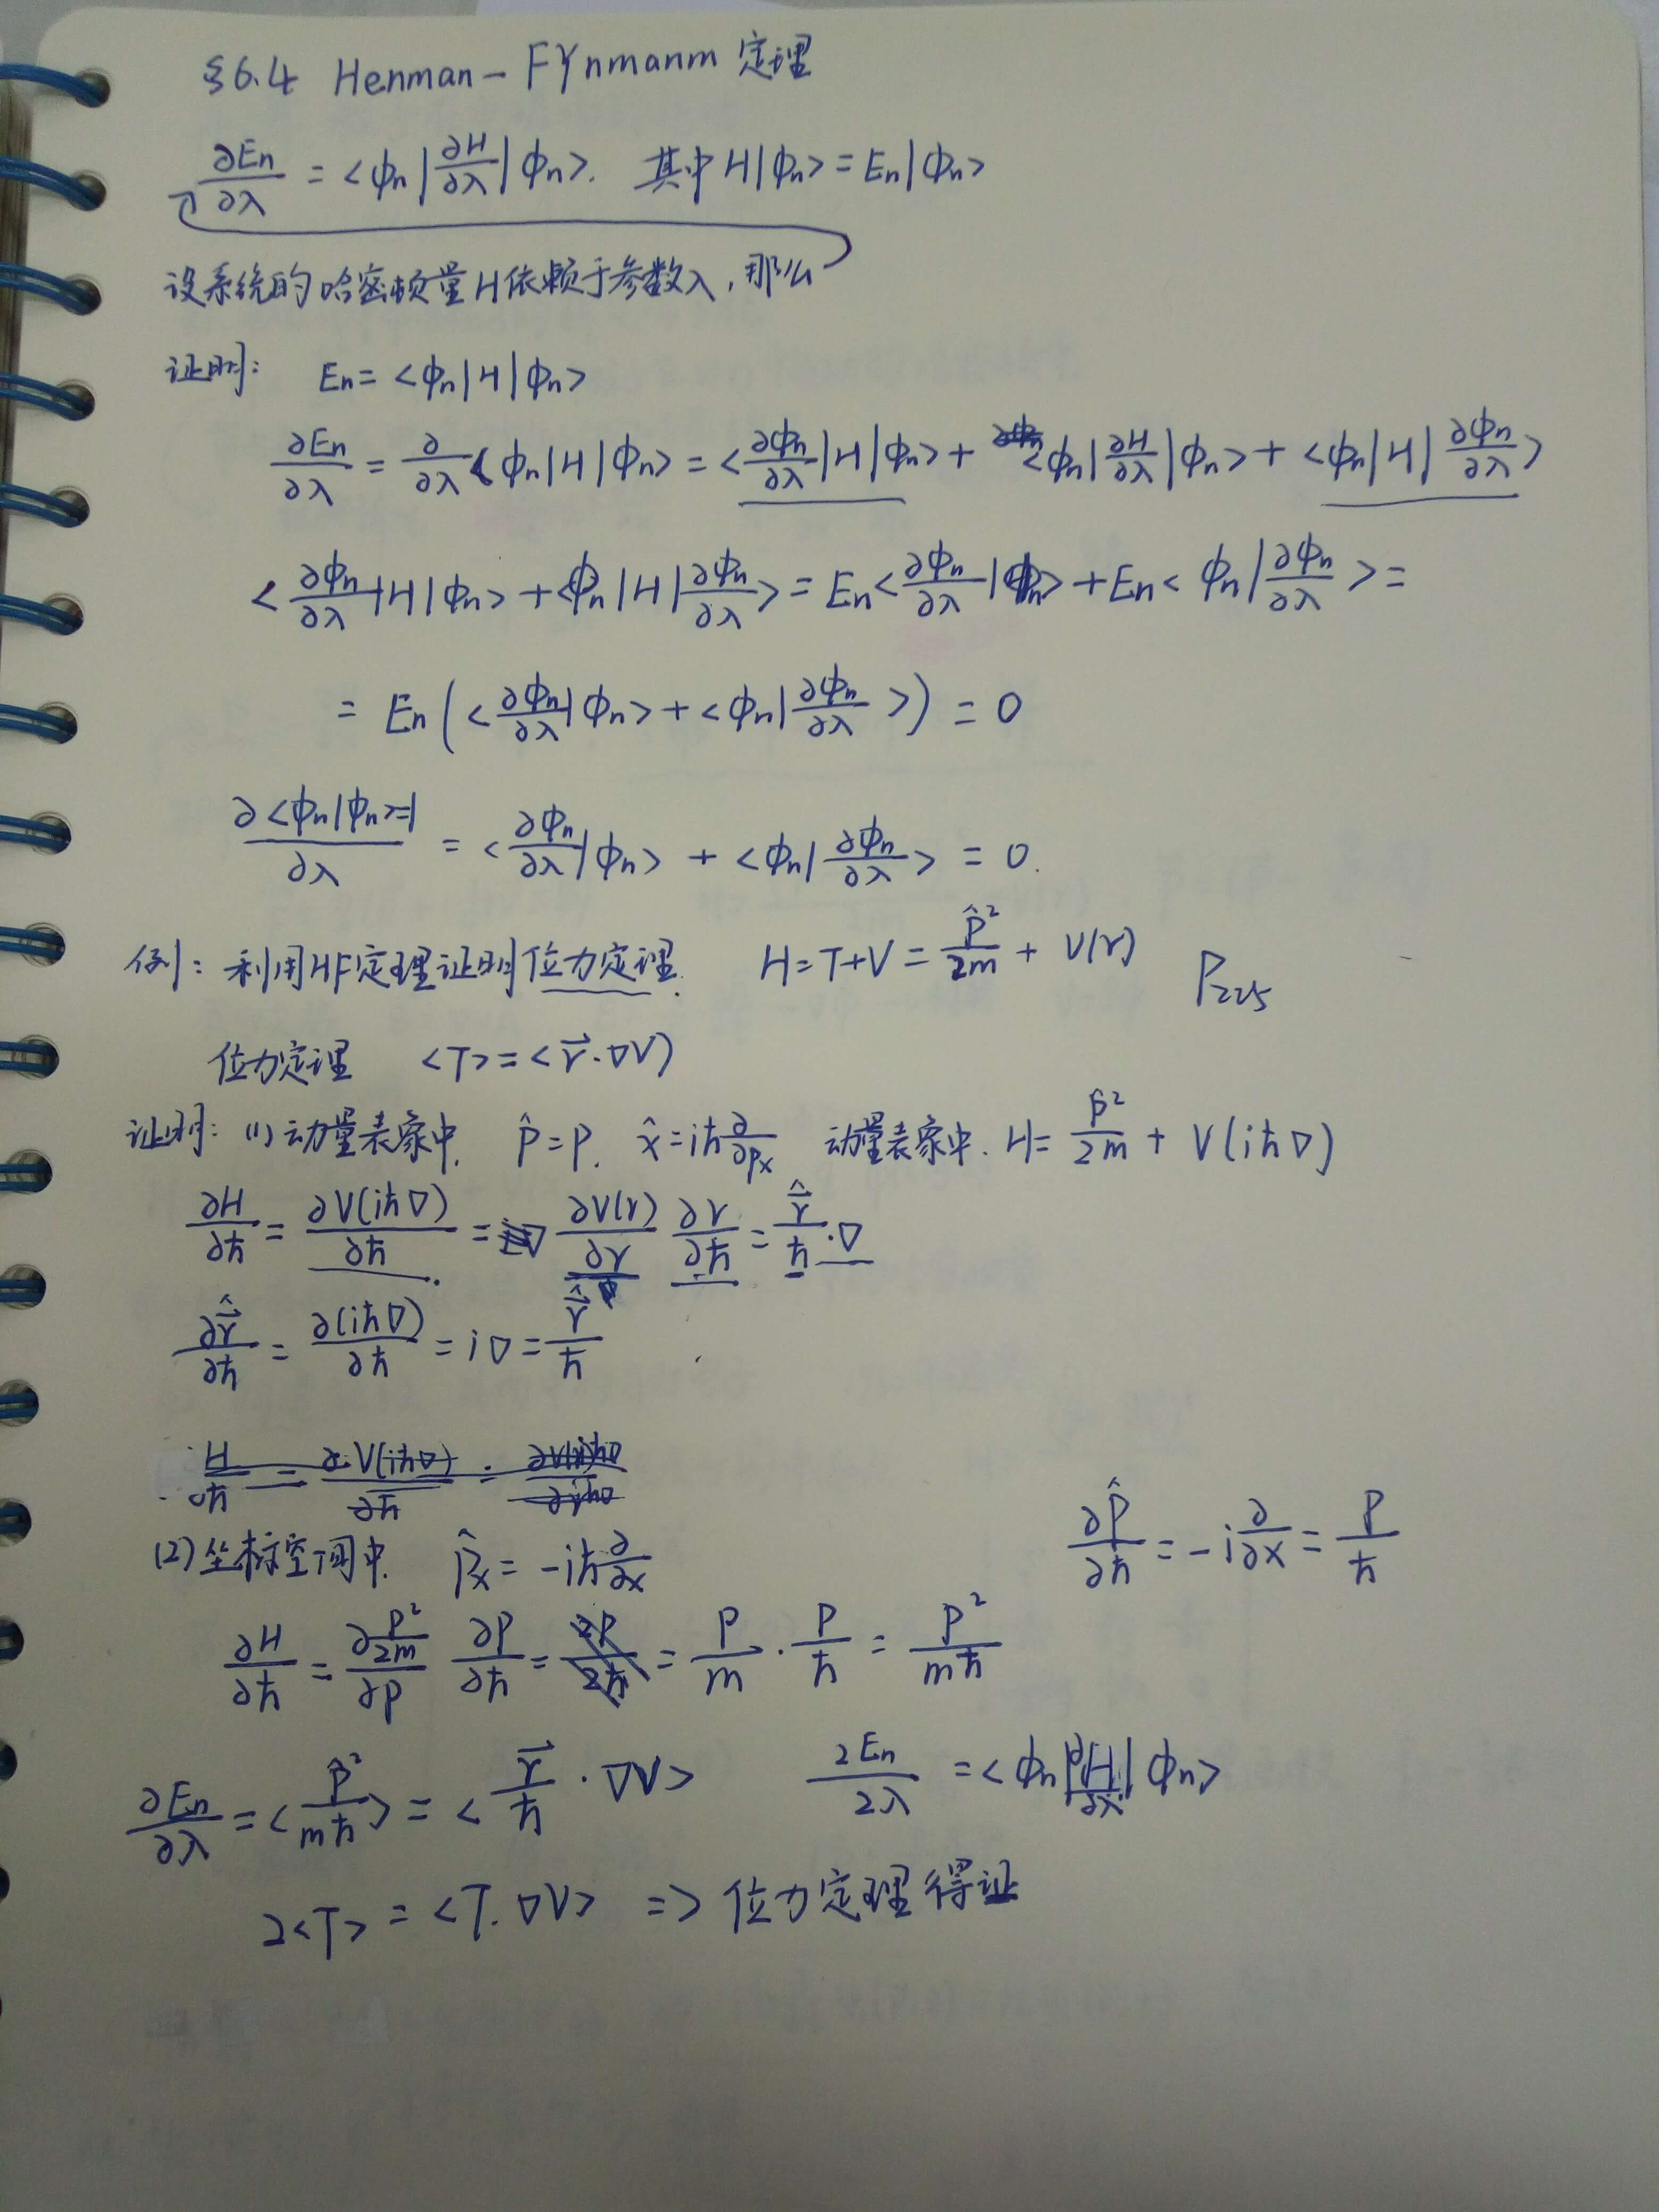 §6.4 Henman-FYnmanm 定理
∂En/∂λ = <φn|∂H/∂λ|φn>. 其中 H|φn> = En|φn>
设系统的哈密顿量H依赖于参数λ,那么
证明: En = <φn|H|φn>
∂En/∂λ = ∂/∂λ <φn|H|φn> = <∂φn/∂λ|H|φn> + <φn|∂H/∂λ|φn> + <φn|H|∂φn/∂λ>
<∂φn/∂λ|H|φn> + <φn|H|∂φn/∂λ> = En<∂φn/∂λ|φn> + En<φn|∂φn/∂λ> =
= En(<∂φn/∂λ|φn> + <φn|∂φn/∂λ>) = 0
∂<φn|φn>=1/∂λ = <∂φn/∂λ|φn> + <φn|∂φn/∂λ> = 0.
例: 利用HF定理证明位力定理. H=T+V = p̂²/2m + V(r) P225
位力定理 <T> = <r⃗·∇V)
证明: (1) 动量表象中. p̂=p. x̂=iħ∂/∂px 动量表象中. H= p̂²/2m + V(iħ∇)
∂H/∂ħ = ∂V(iħ∇)/∂ħ = ∂V(r)/∂r ∂r/∂ħ = r⃗̂/ħ·∇
∂r⃗̂/∂ħ = ∂(iħ∇)/∂ħ = i∇ = r⃗̂/ħ
(2) 坐标空间中. p̂x = -iħ∂/∂x ∂p̂/∂ħ = -i∂/∂x = p/ħ
∂H/∂ħ = ∂(p²/2m)/∂p ∂p/∂ħ = p/m · p/ħ = p²/mħ
∂En/∂λ = <p̂²/mħ> = <r⃗/ħ · ∇V> 2En/2λ = <φn|∂H/∂λ|φn>
2<T> = <T.∇V> => 位力定理得证